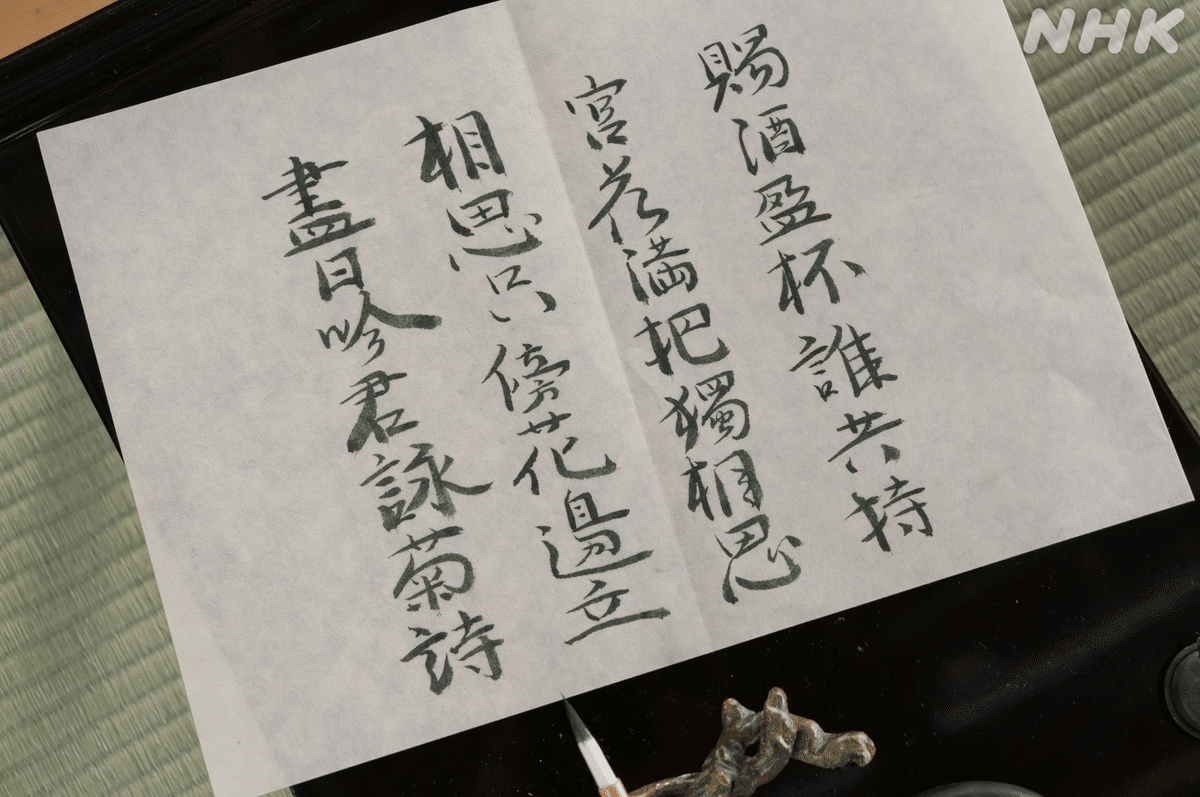 賜酒盈杯誰共持
宮花満把獨相思
相思只傍花邊立
盡日吟君詠菊詩
NHK